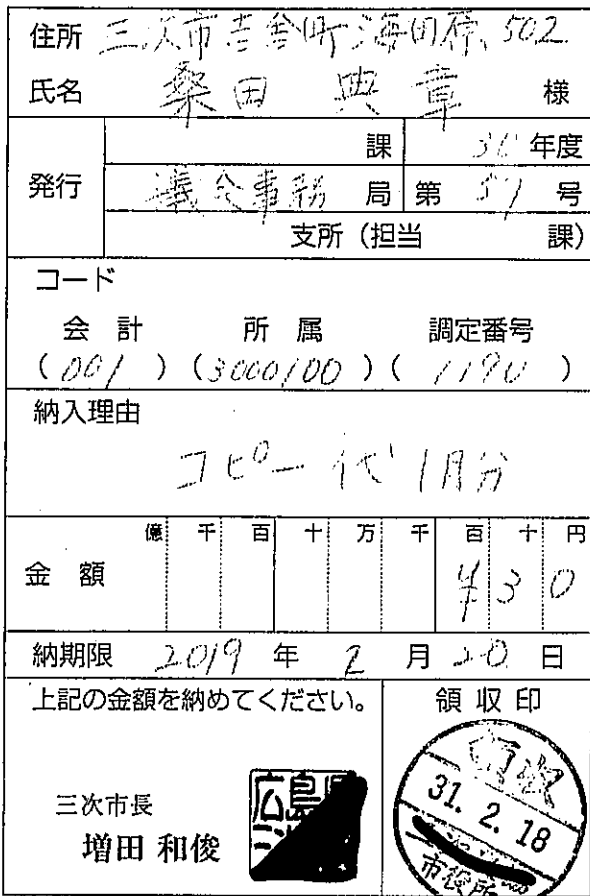 住所 三次市吉舎町海田原502
氏名 桑田 典章 様
発行
課 30年度
議会事務局 第57号
支所(担当 課)
コード
会計 所属 調定番号
(001) (3000100) (1190)
納入理由
コピー代1月分
億 千 百 十 万 千 百 十 円
金額 ¥30
納期限 2019年2月20日
上記の金額を納めてください。
三次市長
増田 和俊
広島県
領収印
領収
31.2.18
市役所